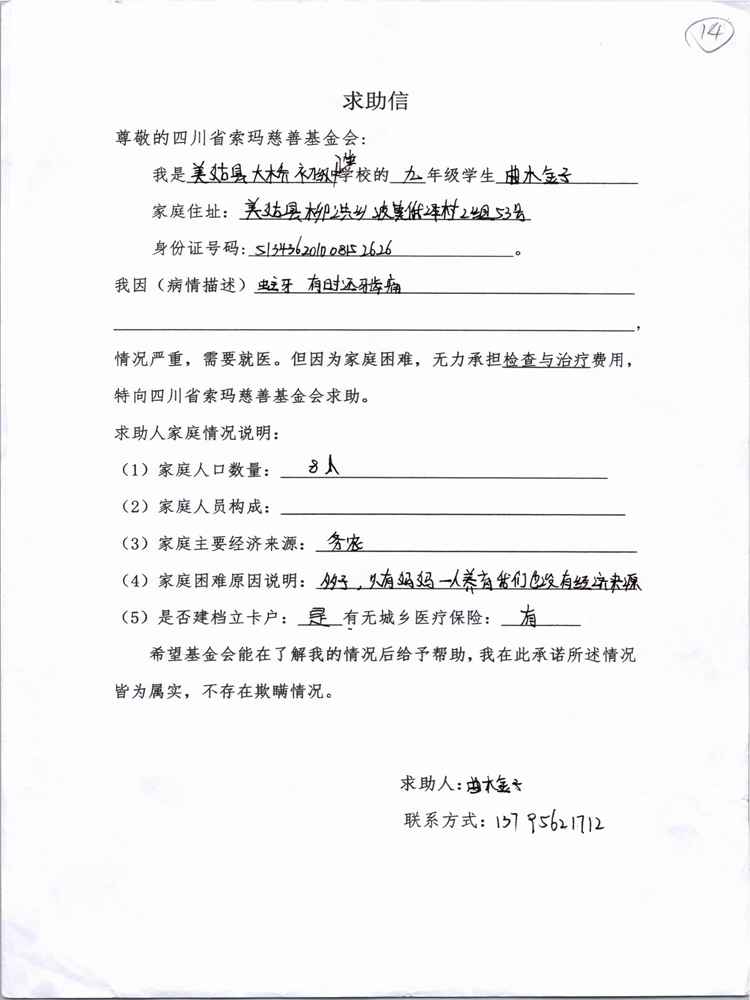 14
求助信
尊敬的四川省索玛慈善基金会:
我是 美姑县大桥初级中学校的 九 年级学生 曲木金子
家庭住址: 美姑县柳洪乡 村2组53号
身份证号码: 513436201008152626 。
我因（病情描述）蛀牙 有时还牙疼痛
，
情况严重，需要就医。但因为家庭困难，无力承担检查与治疗费用，
特向四川省索玛慈善基金会求助。
求助人家庭情况说明:
（1）家庭人口数量: 8人
（2）家庭人员构成:
（3）家庭主要经济来源: 务农
（4）家庭困难原因说明: 多子，只有妈妈一人养育我们也没有经济来源
（5）是否建档立卡户: 是 有无城乡医疗保险: 有
希望基金会能在了解我的情况后给予帮助,我在此承诺所述情况
皆为属实，不存在欺瞒情况。
求助人:曲木金子
联系方式: 13795621712